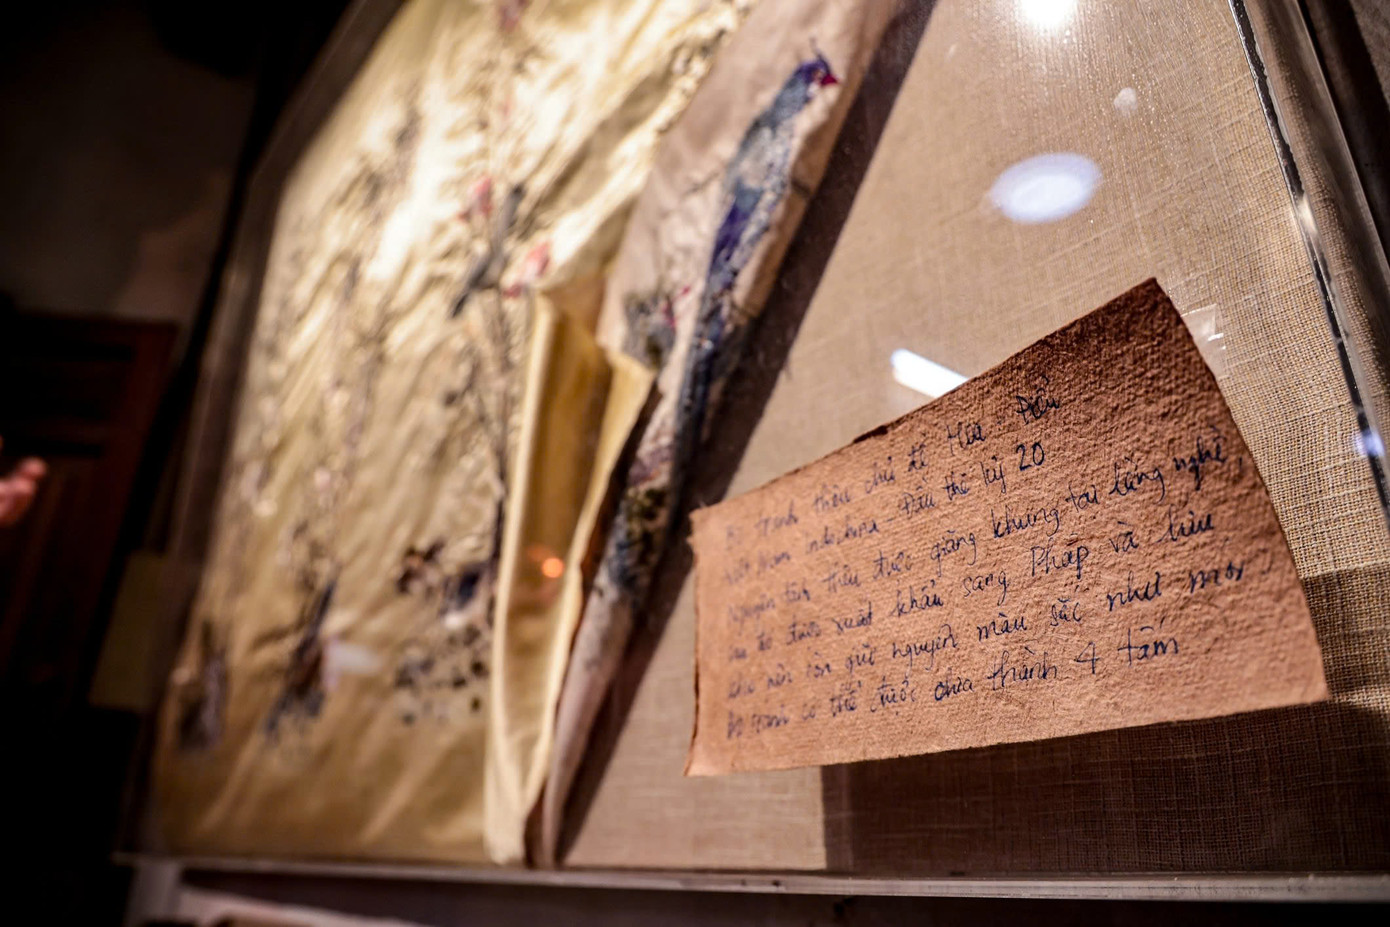 Bộ tranh thêu chủ đề Hoa Điểu
Việt Nam indochina - Đầu thế kỷ 20
Nguyên tính thêu được giăng khung tại làng nghề,
sau đó được xuất khẩu sang Pháp và lưu
cho nên còn giữ nguyên màu sắc như mới
bộ tranh có thể được chia thành 4 tấm